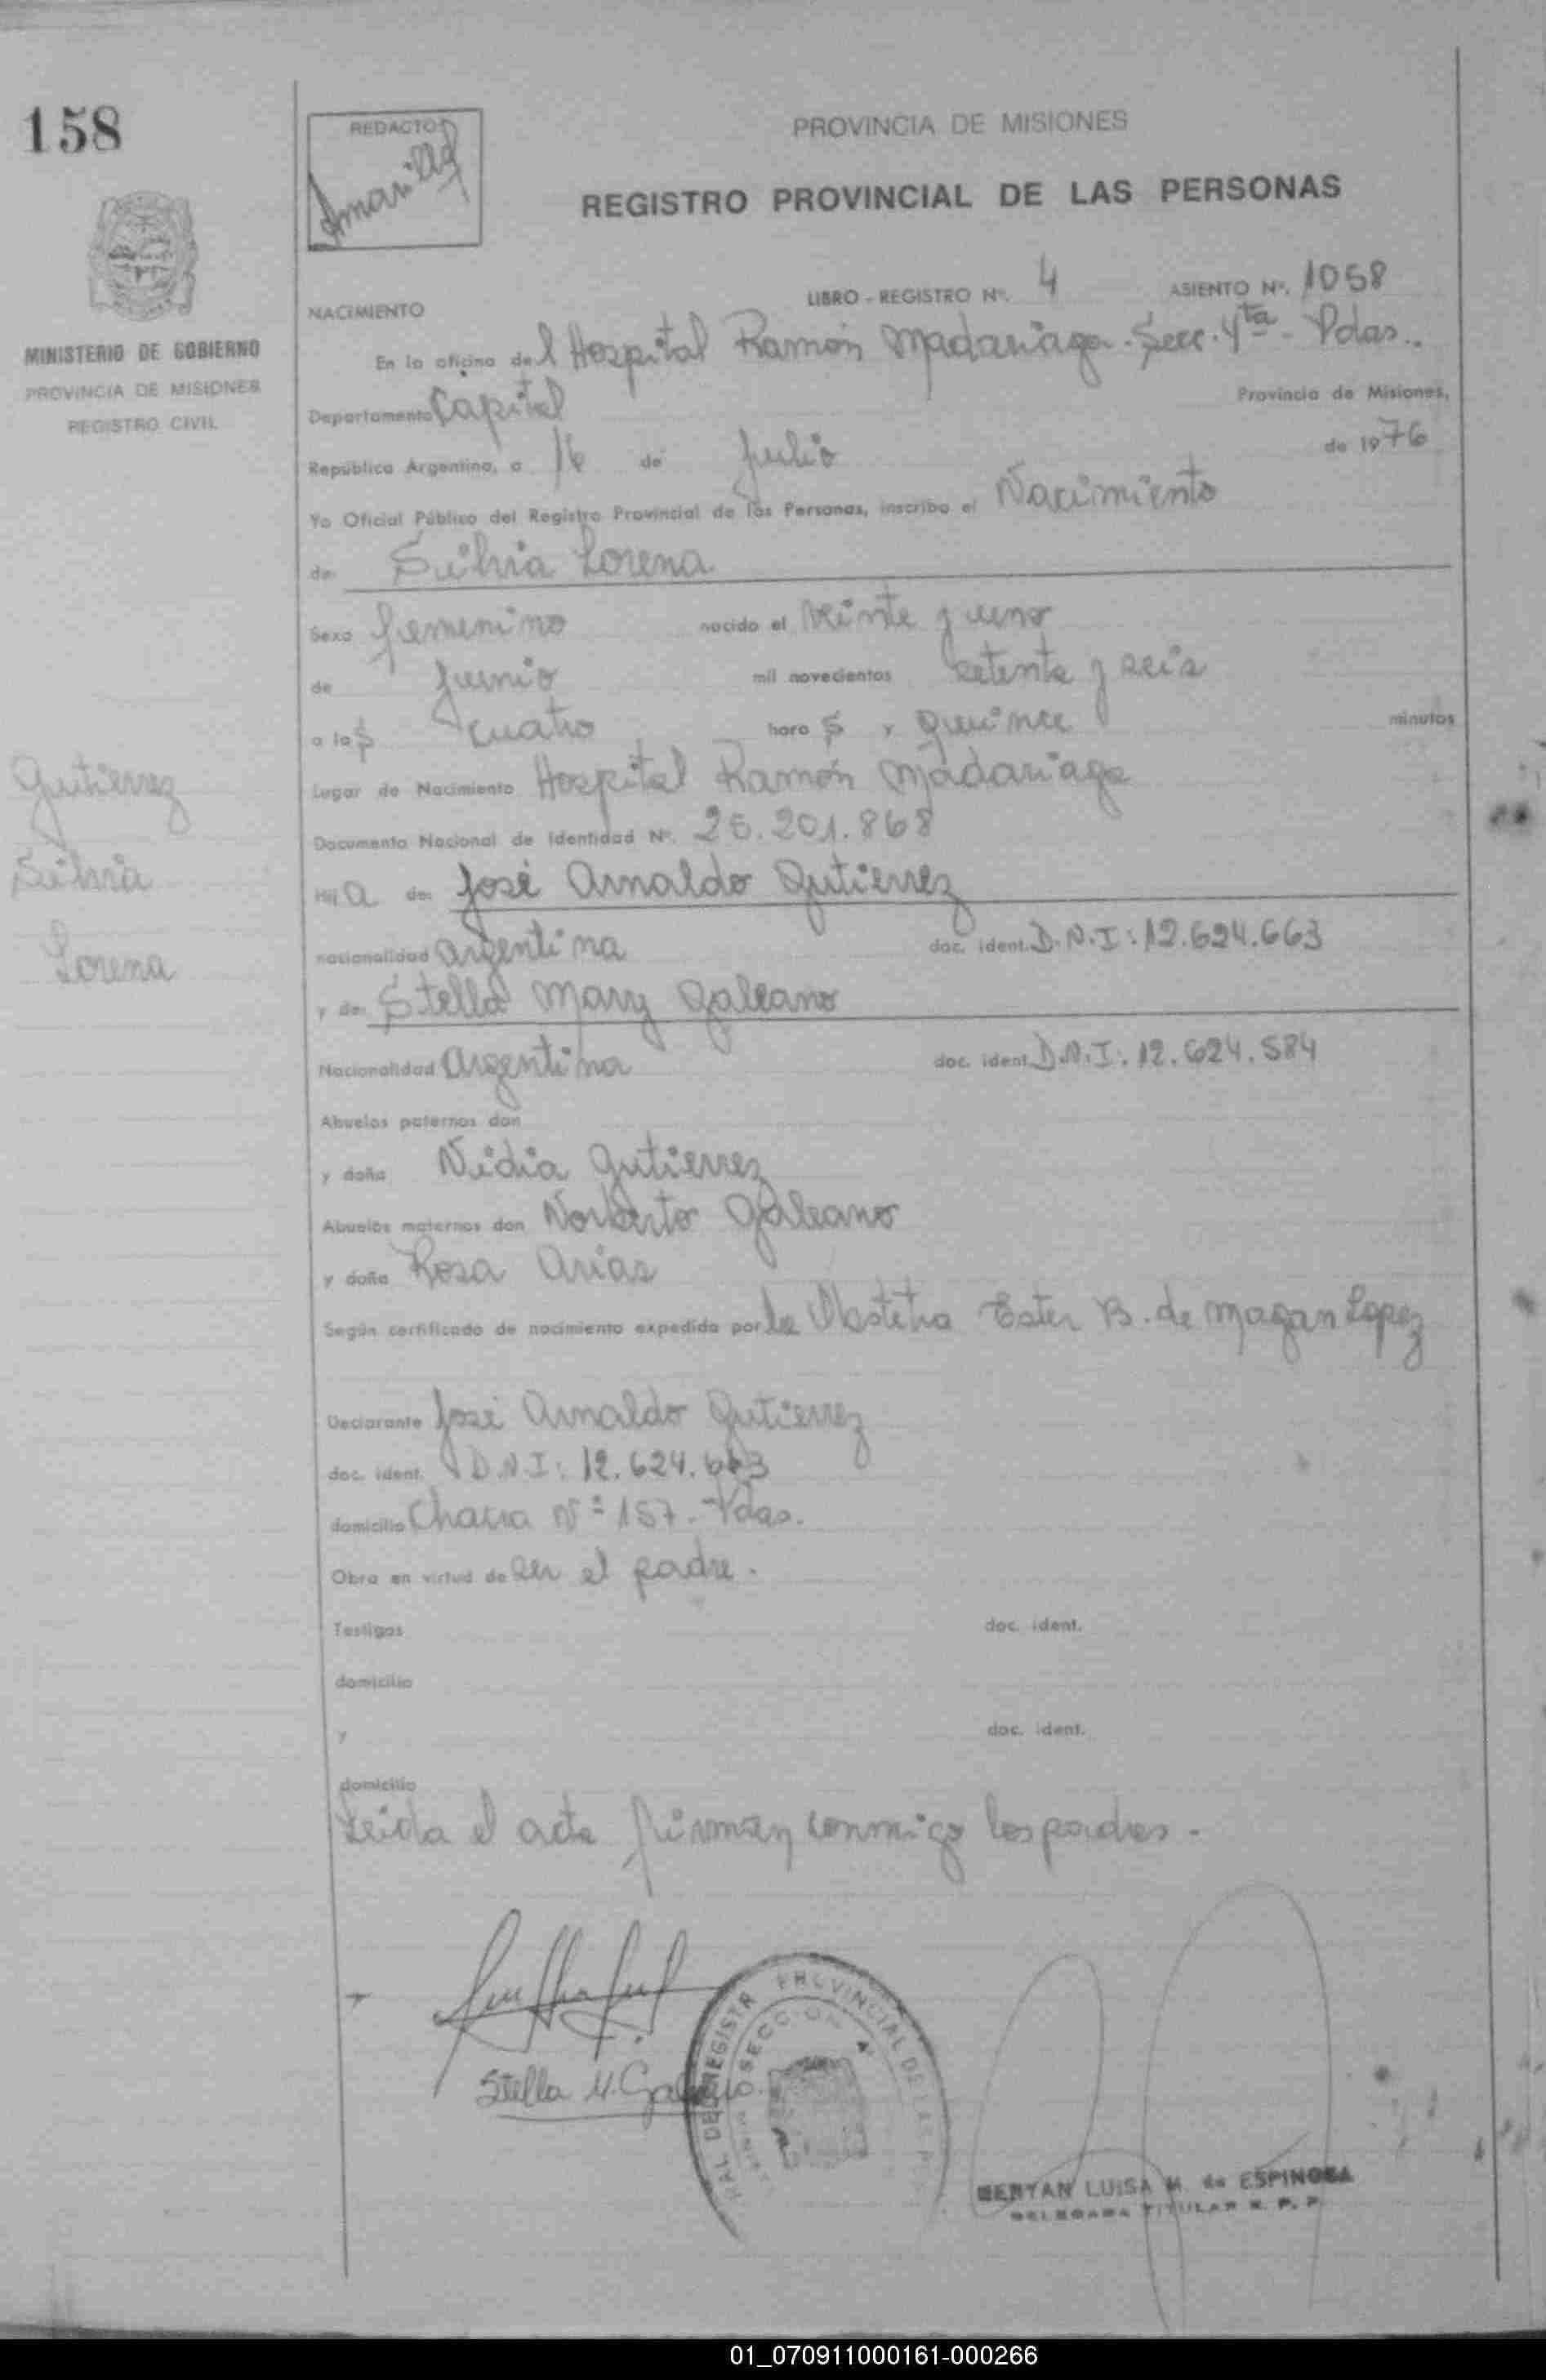 158
REDACTOR
PROVINCIA DE MISIONES
REGISTRO PROVINCIAL DE LAS PERSONAS
MINISTERIO DE GOBIERNO
PROVINCIA DE MISIONES
REGISTRO CIVIL
LIBRO - REGISTRO Nº. 4 ASIENTO Nº. 1058
NACIMIENTO
En la oficina del Hospital Ramón Madariaga. Secc. 4ta - Pdas..
Departamento Capital Provincia de Misiones,
República Argentina, a 16 de Julio de 1976
Yo Oficial Público del Registro Provincial de las Personas, inscribo el Nacimiento
de Silvia Lorena
Sexo femenino nacido el veinte y uno
de Junio mil novecientos setenta y seis
a las cuatro horas y quince minutos
Lugar de Nacimiento Hospital Ramón Madariaga
Documento Nacional de Identidad Nº. 25.201.868
Gutierrez
Silvia
Lorena
Hija de: José Arnaldo Gutierrez
nacionalidad argentina doc. ident. D.N.I: 12.624.663
y de: Stella Mary Galeano
Nacionalidad Argentina doc. ident. D.N.I: 12.624.584
Abuelos paternos don
y doña Nidia Gutierrez
Abuelos maternos don Norberto Galeano
y doña Rosa Arias
Según certificado de nacimiento expedido por la Obstetra Ester B. de Magan Lopez
Declarante José Arnaldo Gutierrez
doc. ident. D.N.I: 12.624.663
domicilio Chacra Nº 157. Pdas.
Obra en virtud de ser el padre.
Testigos doc. ident.
domicilio
y doc. ident.
domicilio
Leida el acta firman conmigo los padres.
Stella M. Galeano
REGISTR PROVINCIAL DE LAS P
SECCION 4
LUISA M. de ESPINOSA
DELEGADA TITULAR R. P. P.
01_070911000161-000266